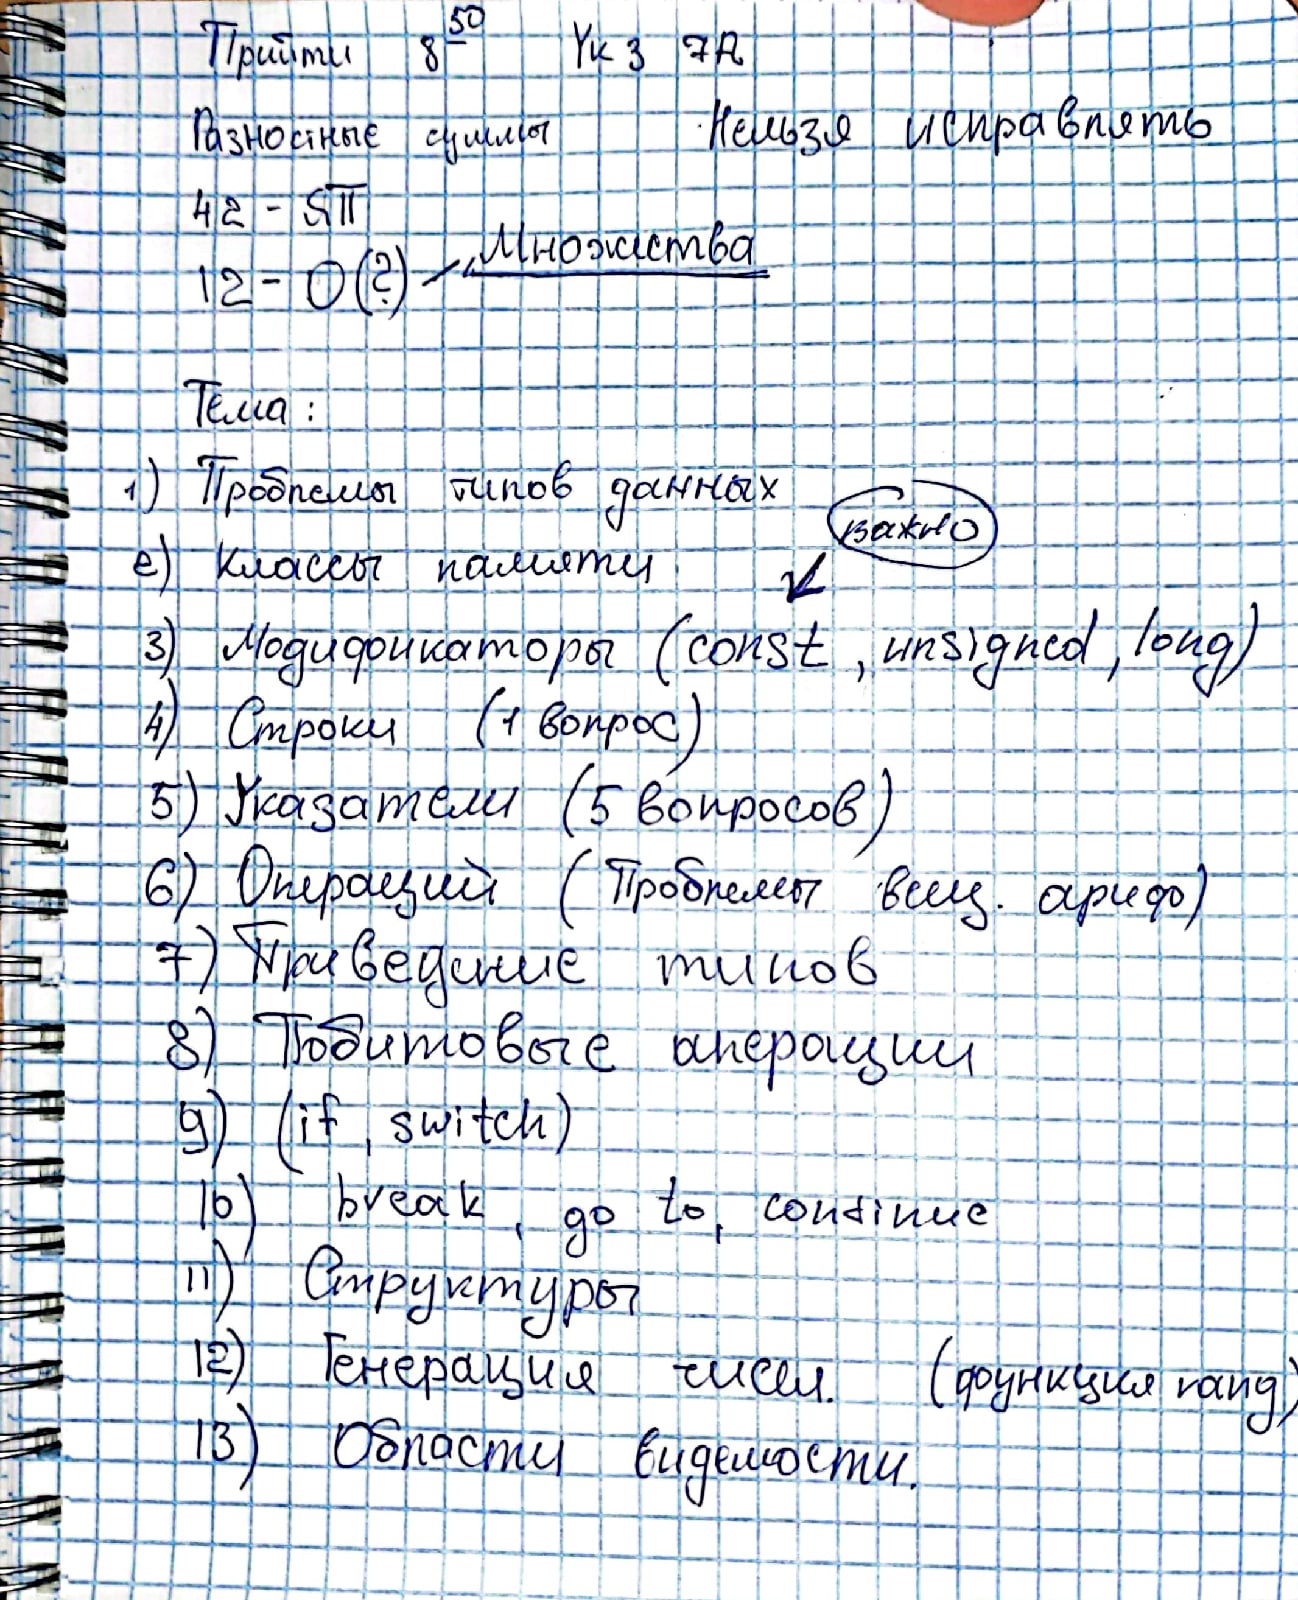 Прийти 8 50 Ук 3 7А
Разностные суммы Нельзя исправлять
42 - ЯП
12 - О(?) - "Множества
Тема:
1) Проблемы типов данных
важно
2) Классы памяти
3) Модификаторы (const, unsigned, long)
4) Строки (1 вопрос)
5) Указатели (5 вопросов)
6) Операций (Проблемы вещ. ариф)
7) Приведение типов
8) Побитовые операции
9) (if, switch)
10) break, go to, continue
11) Структуры
12) Генерация чисел. (функция rang)
13) Области видемости.